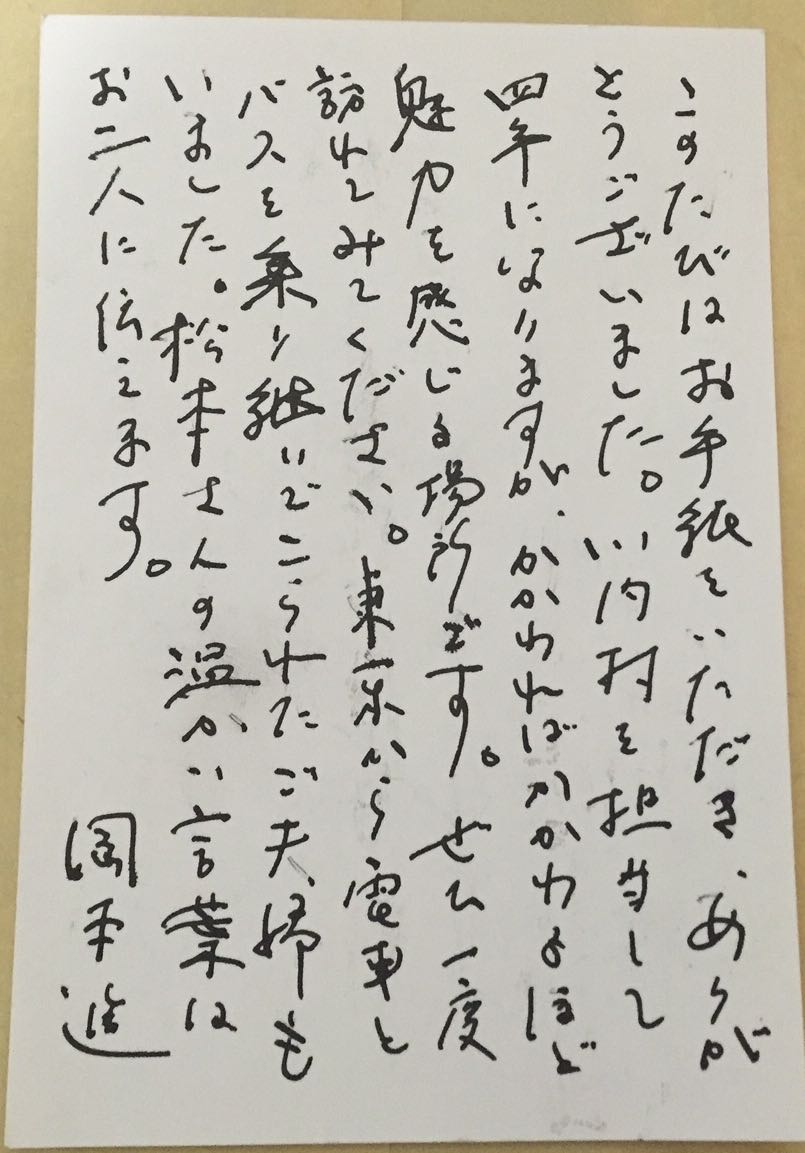 このたびはお手紙をいただき、ありが
とうございました。川内村を担当して
四年になりますが、かかわればかかわるほど
魅力を感じる場所です。ぜひ一度
訪れてみてください。東京から電車と
バスを乗り継いでこられたご夫婦も
いました。松本さんの温かい言葉は
お二人に伝えます。
岡本進